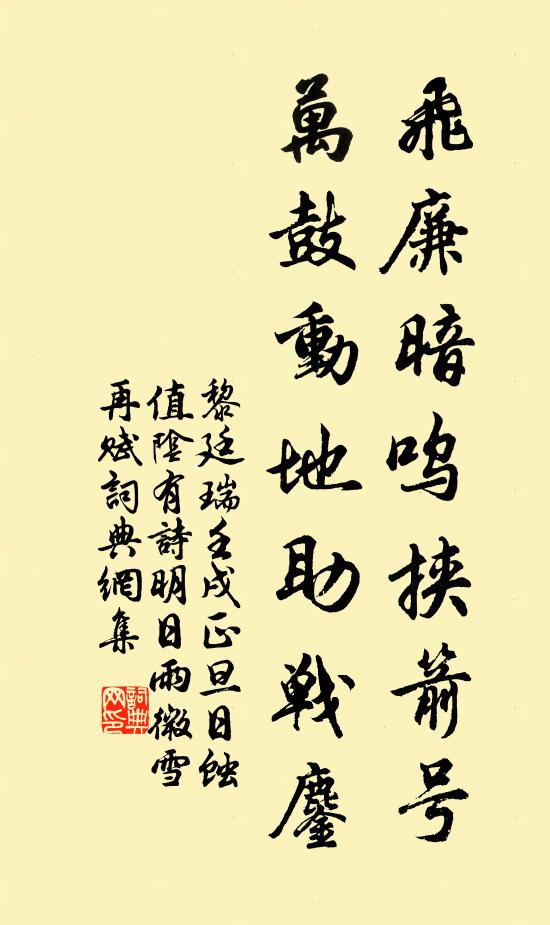 飛廉暗呜挟箭号
萬鼓動地助戰鏖
黎廷瑞壬戌正旦日蝕
值陰有詩明日雨微雪
再赋詞典網集
詞典网印